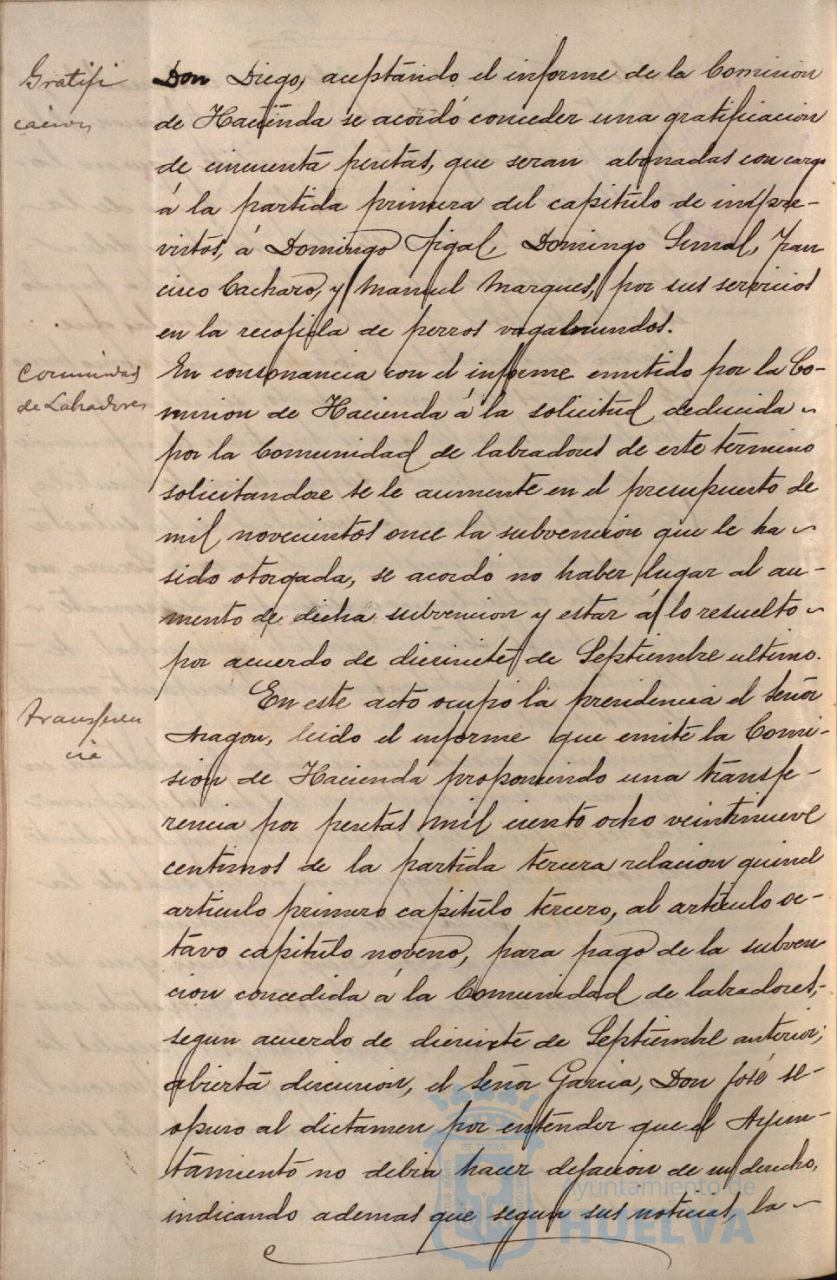 Gratifi
cacion
Don Diego, aceptando el informe de la Comision
de Hacienda se acordó conceder una gratificacion
de cincuenta pesetas, que seran abonadas con cargo
á la partida primera del capitulo de impre-
vistos, á Domingo Domingo Fran
cisco Cacharo, y Manuel Marques, por sus servicios
en la recogida de perros vagabundos.
Comunidad
de Labradores
En consonancia con el informe emitido por la Co-
mision de Hacienda á la solicitud deducida
por la Comunidad de labradores de este termino
solicitandose se le aumente en el presupuesto de
mil novecientos once la subvencion que le ha
sido otorgada, se acordó no haber lugar al au-
mento de dicha subvencion y estar á lo resuelto
por acuerdo de diecisiete de Septiembre ultimo.
transferen
cia
En este acto ocupó la presidencia el Señor
Aragon, leido el informe que emite la Comi-
sion de Hacienda proponiendo una transfe-
rencia por pesetas mil ciento ocho veintinueve
centimos de la partida tercera relacion quince
articulo primero capitulo tercero, al articulo oc-
tavo capitulo noveno, para pago de la subven
cion concedida á la Comunidad de labradores,
segun acuerdo de diecisiete de Septiembre anterior;
abierta discusion, el Señor Garcia, Don José se
opuso al dictamen por entender que el Ayun-
tamiento no debia hacer dejacion de su derecho,
indicando ademas que segun sus noticias, la
Ayuntamiento de
HUELVA